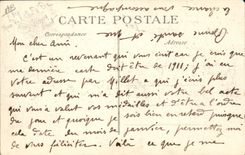 CARTE POSTALE
Mon cher Ami
Adresse
C'est un revenant qui vous écrit car je crois que
ma dernière carte doit être de 1911; j'ai eu
votre adresse par Gillet a qui j'écris plus
souvent et qui m'a dit aussi votre bel acte
qui vous a valut vos médailles et d'être à l'ordre
du jour et quoique je sois bien en retard puisque
cela date du mois de janvier, permettez moi
de vous féliciter. Voilà ce que je me